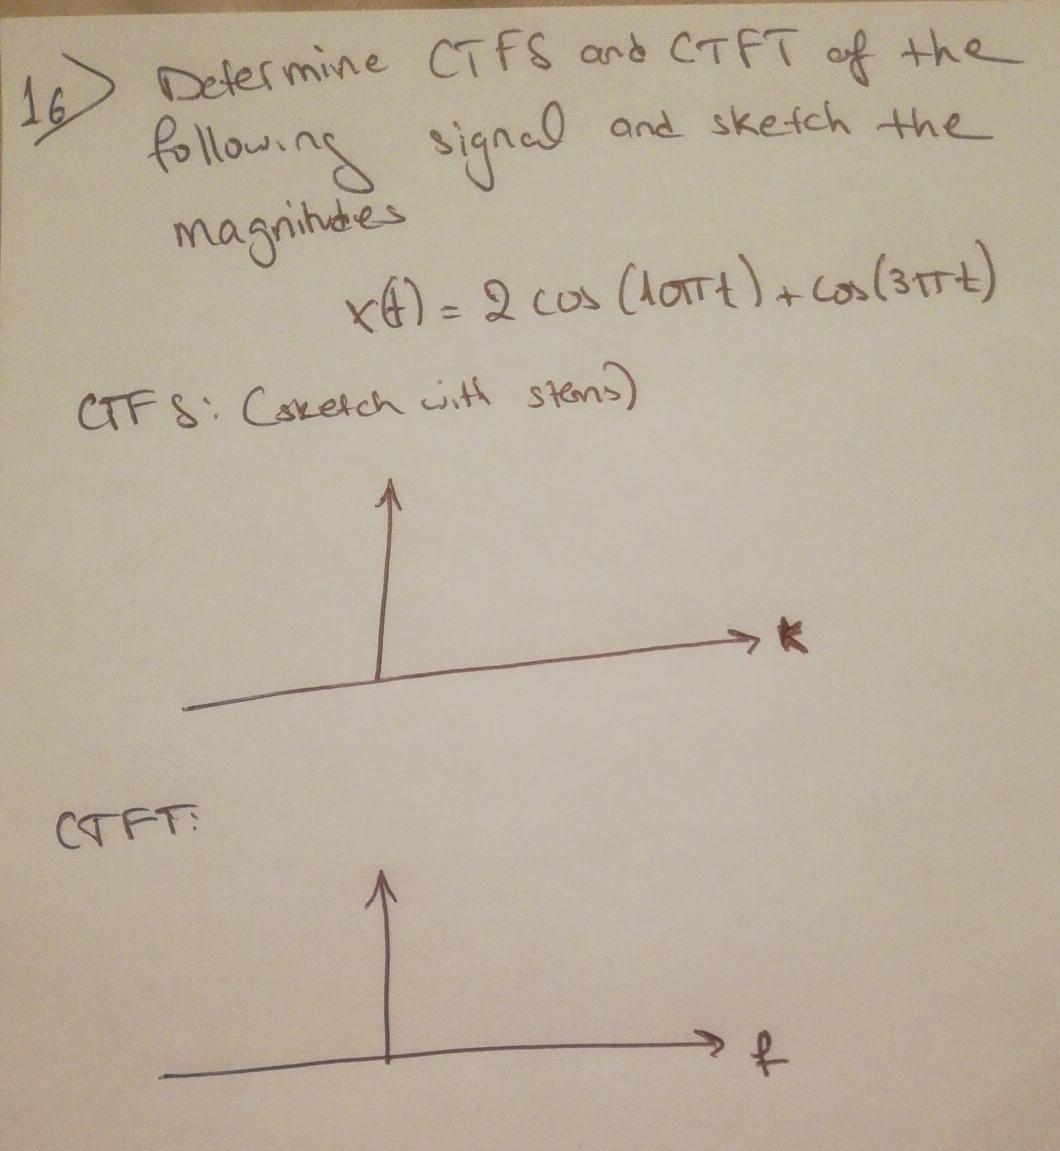 16) Determine CTFS and CTFT of the
following signal and sketch the
magnitudes
x(t) = 2 cos (10πt) + cos(3πt)
CTFS: (sketch with stems)
k
CTFT:
f